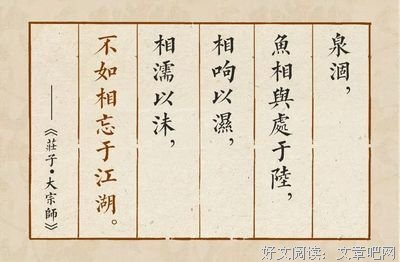 泉涸，
魚相與處于陸，
相呴以濕，
相濡以沫，
不如相忘于江湖。
——《莊子·大宗師》
好文阅读：文章吧网